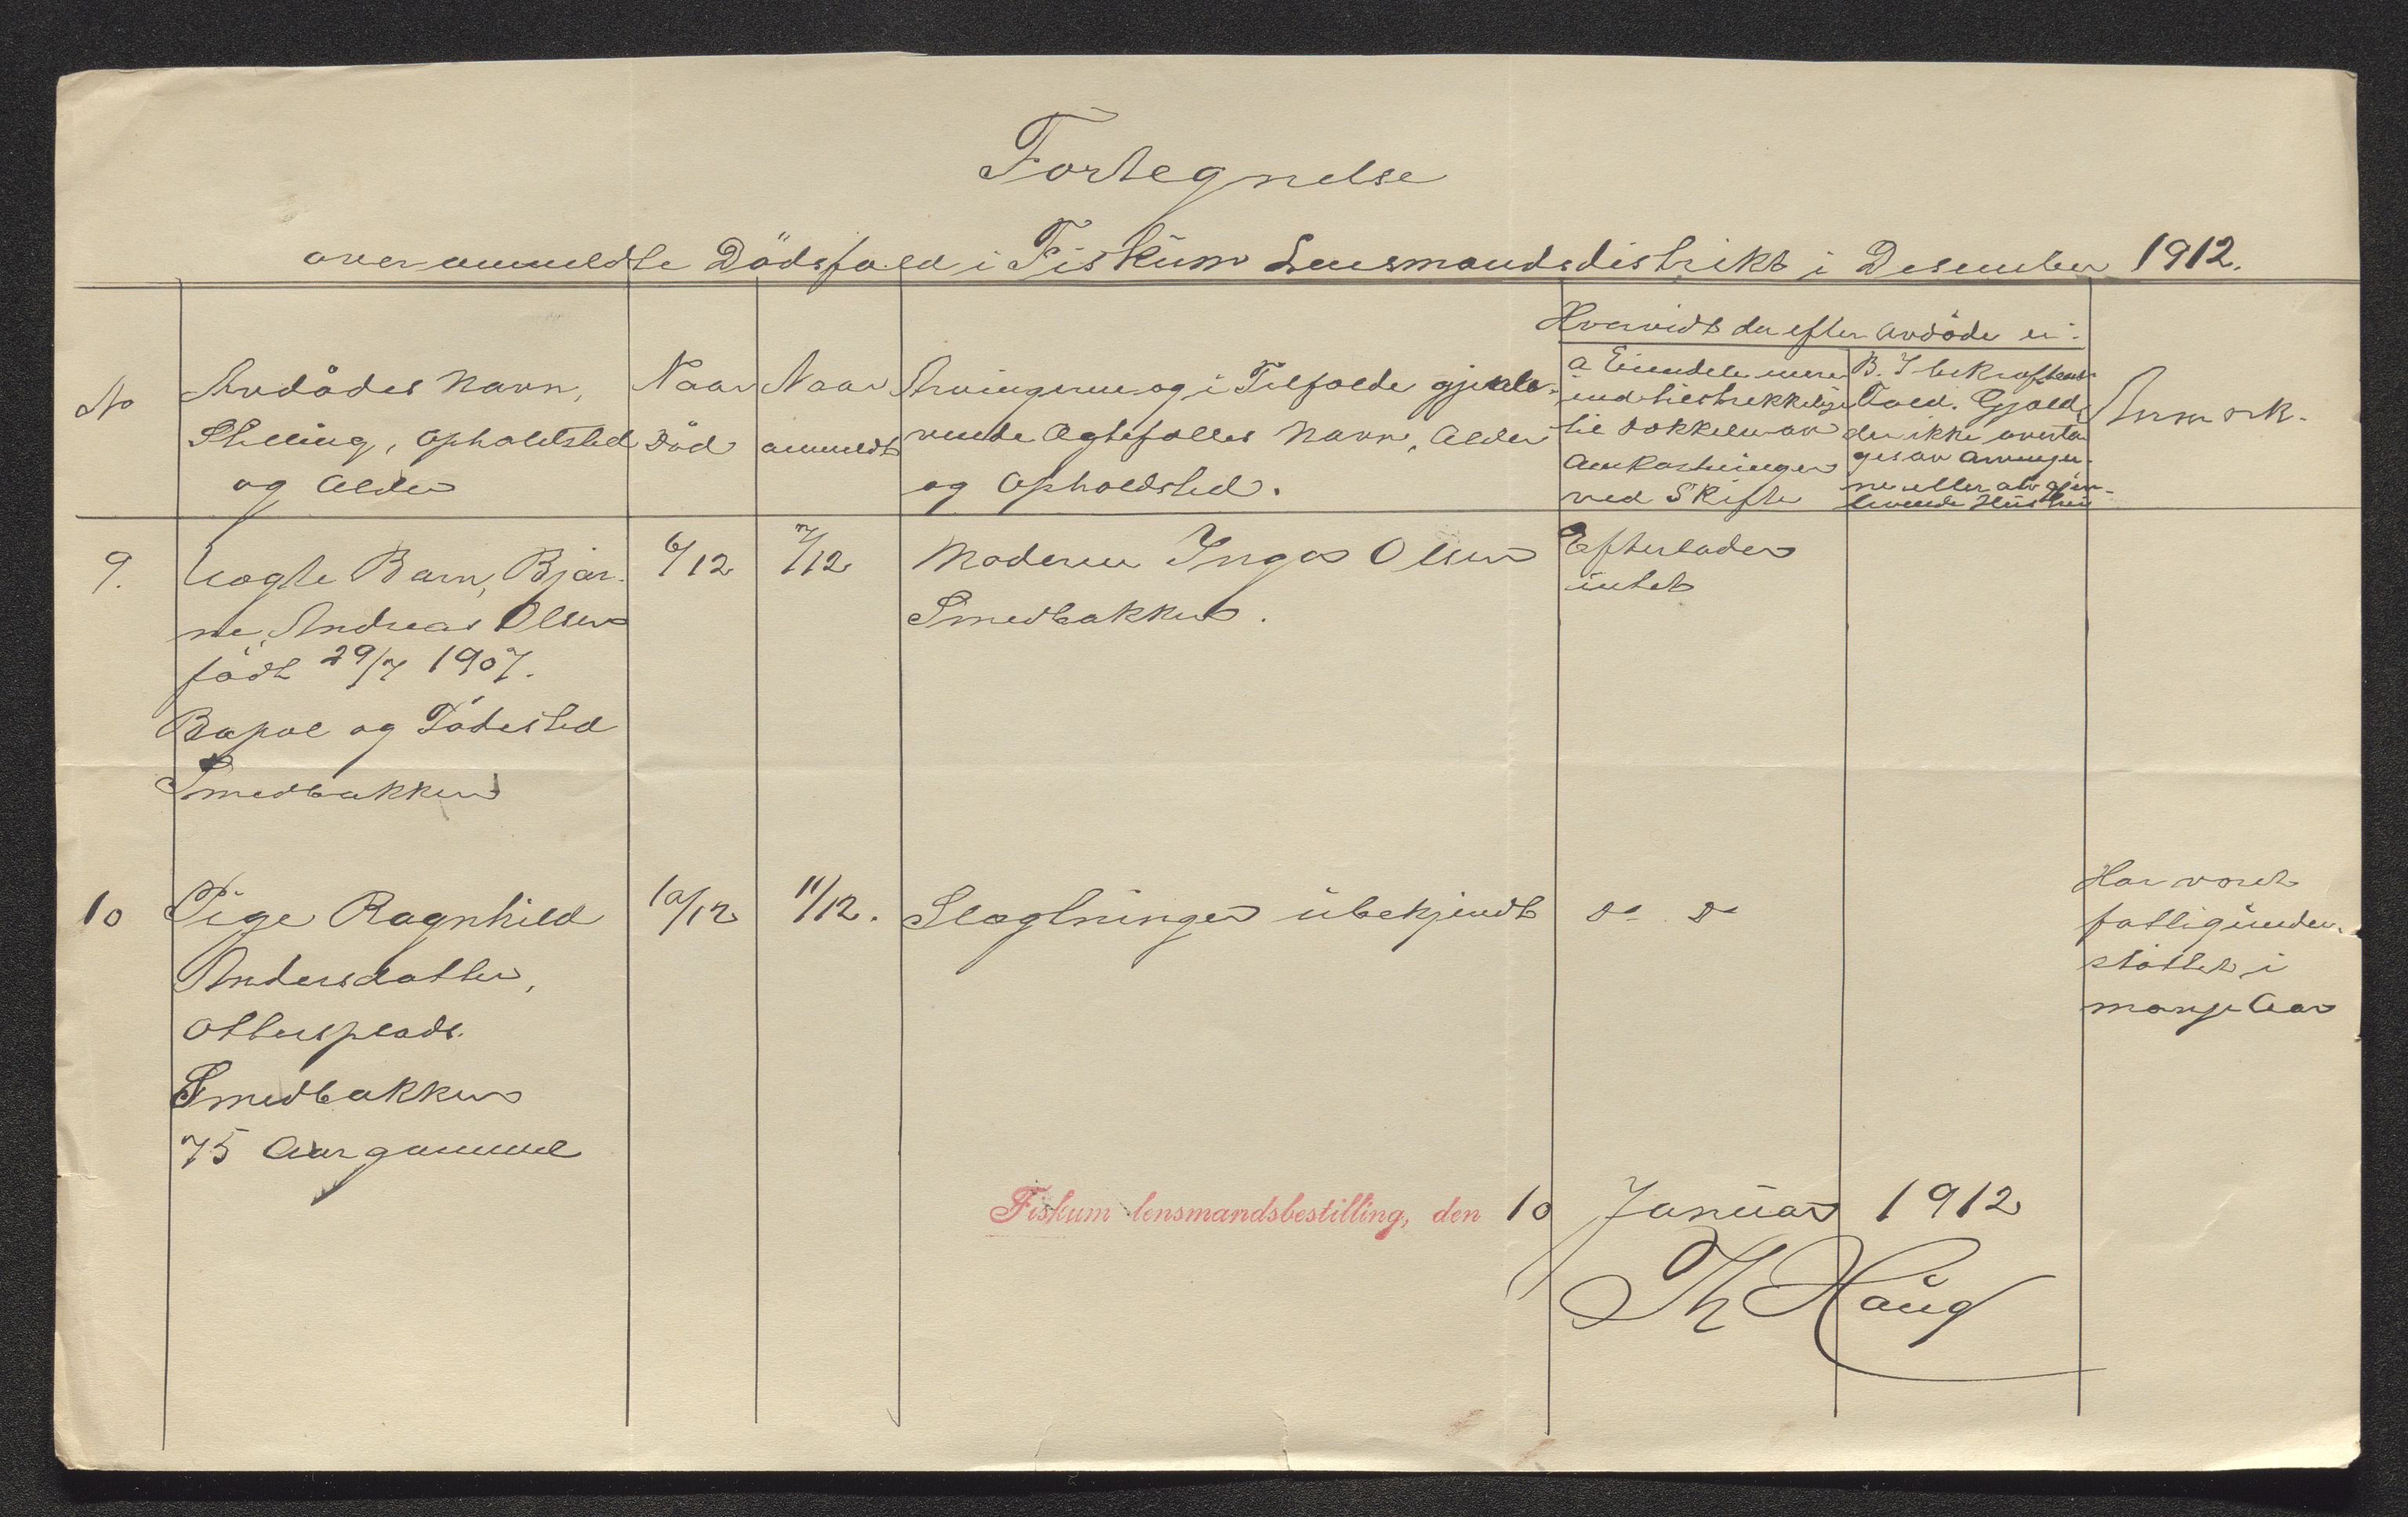 Fortegnelse
over anmeldte Dödsfald i Fiskum Lensmandsdistrikt i Desember 1912.
No
Avdødes Navn,
Stilling, Opholdsted
og Alder
Naar
Död
Naar
anmeldt
Arvingerne og i Tilfælde gjenle-
vende Ægtefælles Navn, Alder
og Opholdsted.
Hvorvidt der efter Avdöde er:
a Eiendele mere
end tilstrekkelige
til Dækkelse av
Omkostninger
ved Skifte
B. I bekræftende
Fald. Gjæld,
der ikke overta
ges av Arvinger-
ne eller av gjen-
levende Hustru
Anmerk.
9.
Uægte Barn, Bjar-
ne Andreas Olsen
født 29/7 1907.
Bopæl og Fødested
Smedbakken
6/12
7/12
Moderen Inga Olsen
Smedbakken.
Efterlader
intet
10
Pige Ragnhild
Andersdatter,
Ottersplads.
Smedbakken
75 Aar gammel
10/12
11/12.
Slægtninger ubekjendt
Do Do
Har været
fattigunder-
støttet i
mange Aar
Fiskum lensmandsbestilling, den 10 Januar 1912
Th Haug